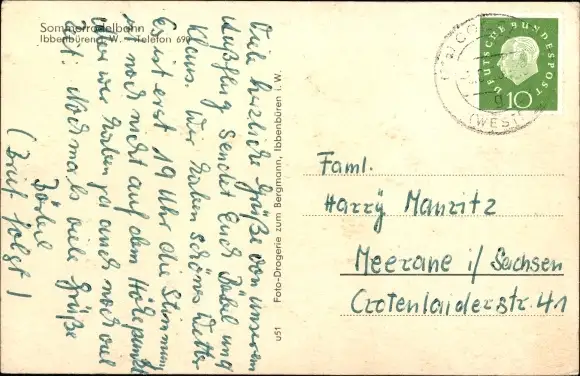 Sommerrodelbahn
Ibbenbüren i. W. - Telefon 690
Viele herzliche Grüße von unserem
Ausflug sendet Euch Bärbel und
Klaus. Wir haben schönes Wetter
Es ist erst 19 Uhr die Stimmung
ist noch nicht auf dem Höhepunkt
aber wir haben ja auch noch viel
Zeit! Nochmals viele Grüße
(Brief folgt)
Foto-Drogerie zum Bergmann, Ibbenbüren i. W.
u51
DEUTSCHE BUNDESPOST
10
(WESTF
g
Faml.
Harry Manritz
Meerane i/Sachsen
Crotenlaiderstr. 41